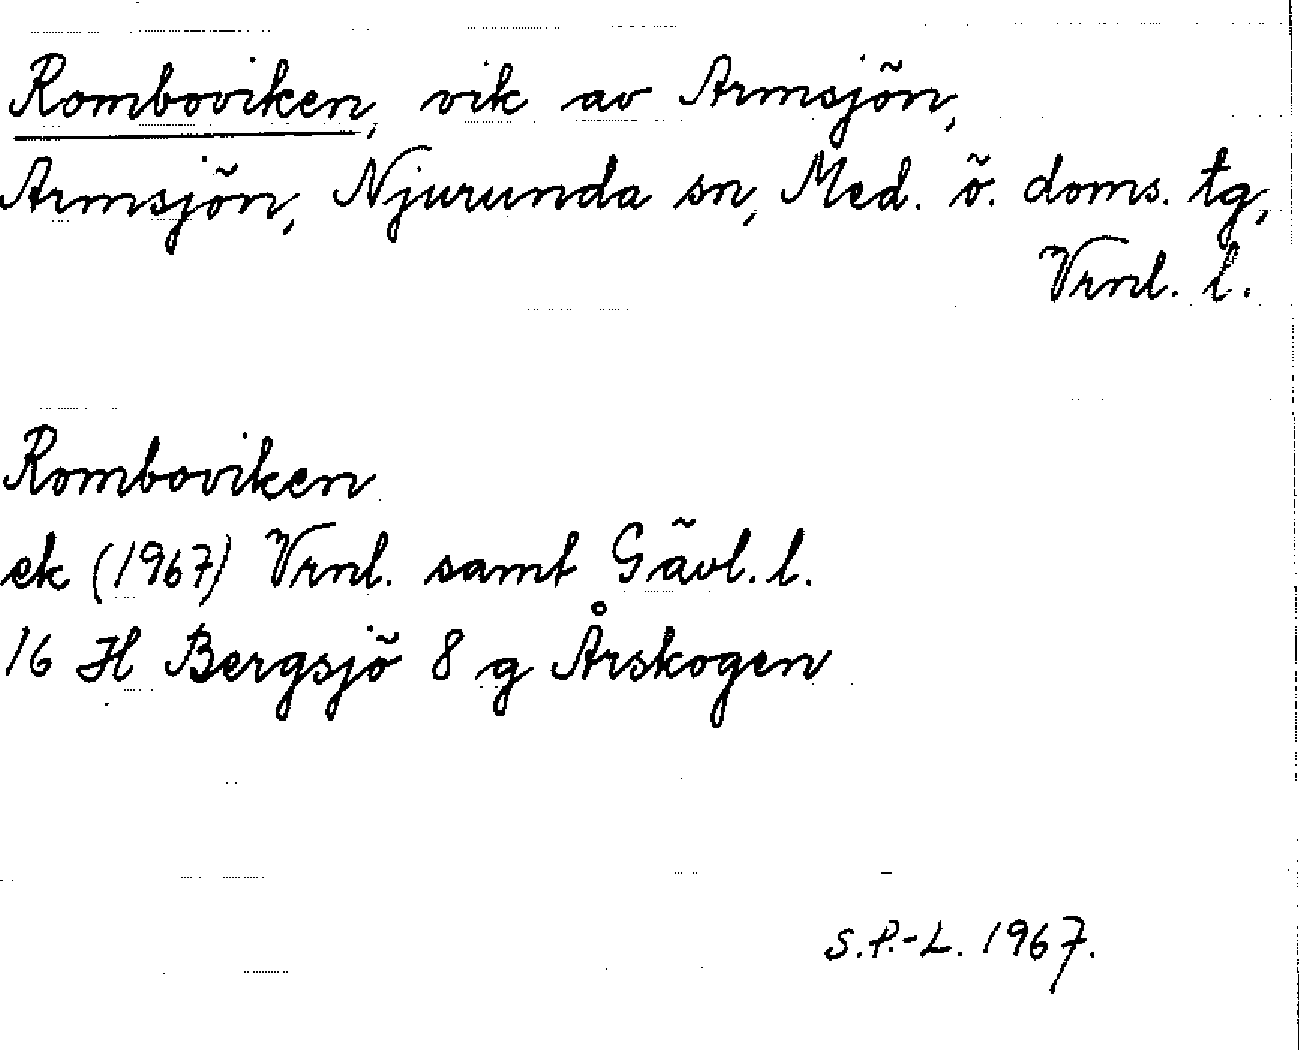 Romboviken, vik av Armsjön,
Armsjön, Njurunda sn, Med. ö. doms. tg,
Vrnl. l.
Romboviken
ek (1967) Vrnl. samt Gävl. l.
16 H Bergsjö 8 g Årskogen
S.P.-L. 1967.